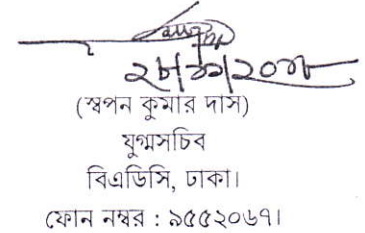 (স্বপন কুমার দাস)
যুগ্মসচিব
বিএডিসি, ঢাকা।
ফোন নম্বর : ৯৫৫২০৬৭।